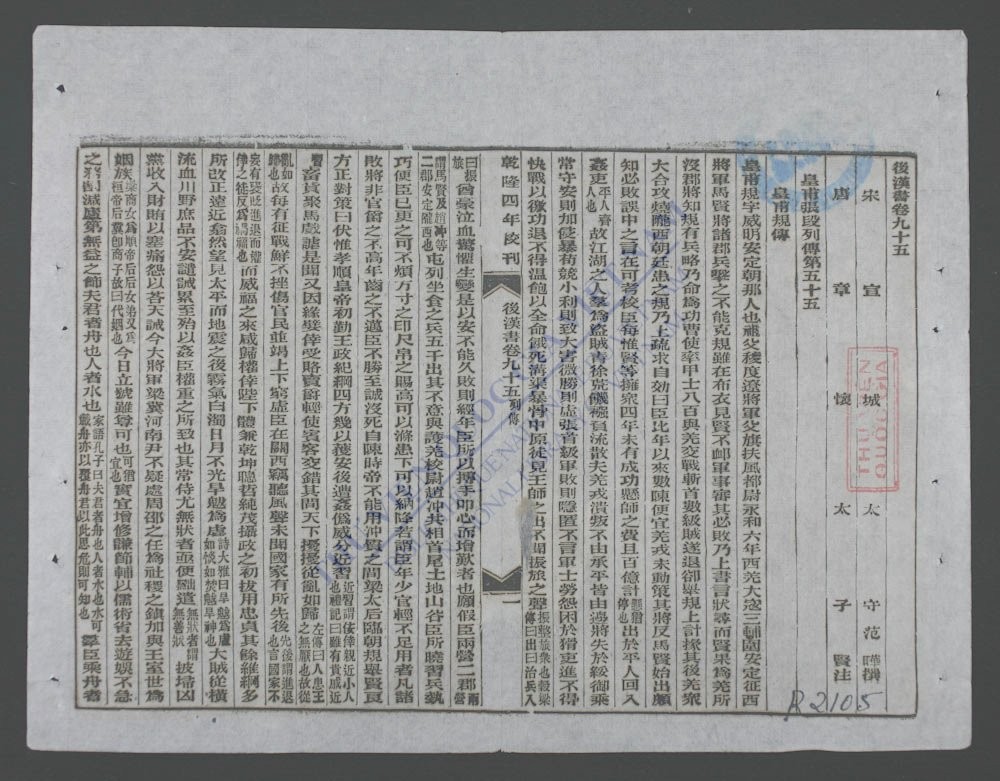 後漢書卷九十五
宋宣城太守范曄撰
唐章懷太子賢注
皇甫張段列傳第五十五
皇甫規傳
皇甫規字威明安定朝那人也祖父稜度遼將軍父旗扶風都尉永和六年西羌大寇三輔圍安定征西
將軍馬賢將諸郡兵擊之不能克規雖在布衣見賢不卹軍事審其必敗乃上書言狀尋而賢果為羌所
沒郡將知規有兵略乃命為功曹使率甲士八百與羌交戰斬首數級賊遂退卻舉規上計掾其後羌衆
大合攻燒隴西朝廷患之規乃上疏求自効曰臣比年以來數陳便宜羌戎未動策其將反馬賢始出頗
知必敗誤中之言在可考校臣每惟賢等擁衆四年未有成功懸師之費且百億計懸猶停也出於平人回入
姦吏平人齊人也故江湖之人羣為盜賊青徐荒饑襁負流散夫羌戎潰叛不由承平皆由邊將失於綏御乘
常守安則加侵暴苟競小利則致大害微勝則虛張首級軍敗則隱匿不言軍士勞怨困於猾吏進不得
快戰以徼功退不得溫飽以全命餓死溝渠暴骨中原徒見王師之出不聞振旅之聲振整旅衆也穀梁傳曰出曰治兵入
乾隆四年校刊 後漢書卷九十五列傳 一
曰振旅酋豪泣血驚懼生變是以安不能久敗則經年臣所以搏手叩心而增歎者也願假臣兩營二郡兩營
謂馬賢及趙沖等二郡安定隴西也屯列坐食之兵五千出其不意與護羌校尉趙沖共相首尾土地山谷臣所曉習兵埶
巧便臣已更之可不煩方寸之印尺帛之賜高可以滌患下可以納降若謂臣年少官輕不足用者凡諸
敗將非官爵之不高年齒之不邁臣不勝至誠沒死自陳時帝不能用沖質之間梁太后臨朝規舉賢良
方正對策曰伏惟孝順皇帝初勤王政紀綱四方幾以獲安後遭姦偽威分近習近習謂佞倖親近小人也禮記曰雖有貴戚近
習畜貨聚馬戲謔是聞又因緣嬖倖受賂賣爵輕使賓客交錯其間天下擾擾從亂如歸左傳曰人患王之無厭也故從
亂如歸也故每有征戰鮮不挫傷官民並竭上下窮虛臣在關西竊聽風聲未聞國家有所先後先後謂進退也言國家不
妄有褒貶進退而權倖之徒反為禍福也而威福之來咸歸權倖陛下體兼乾坤聰哲純茂攝政之初拔用忠貞其餘維綱多
所改正遠近翕然望見太平而地震之後霧氣白濁日月不光旱魃為虐詩大雅曰旱魃為虐如惔如焚魃旱神也大賊從橫
流血川野庶品不安譴誡累至殆以姦臣權重之所致也其常侍尤無狀者亟便黜遣無狀者謂無善狀披埽凶
黨收入財賄以塞痛怨以荅天誡今大將軍梁冀河南尹不疑處周邵之任為社稷之鎮加與王室世為
姻族梁商女為順帝后后女弟又為桓帝后冀卽商子故曰代姻也今日立號雖尊可也可猶宜也實宜增修謙節輔以儒術省去遊娛不急
之務割減廬第無益之飾夫君者舟也人者水也家語孔子曰夫君者舟也人者水也水可載舟亦以覆舟君以此思危則可知也羣臣乘舟者
THU VIEN
QUOC GIA
R2105